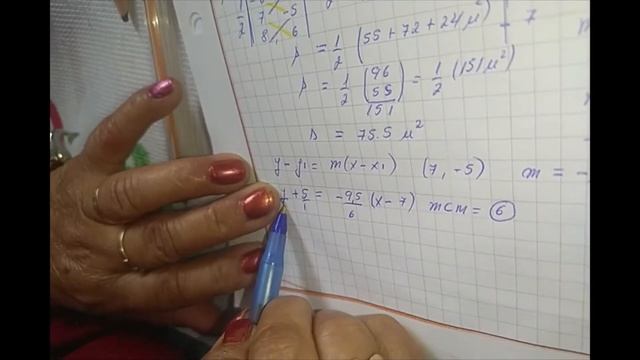 1/2 | 7 -5 |
8, 6
= 1/2 (55 + 72 + 24 μ²) 7
= 1/2 (96 55 151) = 1/2 (151 μ²)
= 75.5 μ²
y - y1 = m(x - x1) (7, -5) m = -
+ 5/1 = - 95/6 (x - 7) mcm = 6